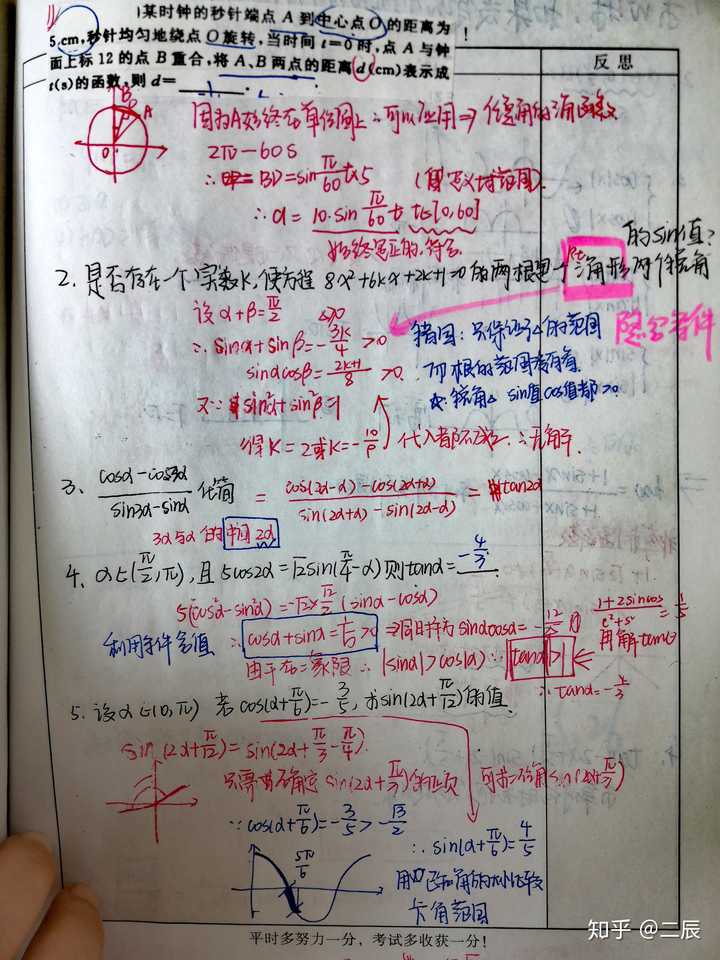 某时钟的秒针端点 A 到中心点 O 的距离为
5 cm,秒针均匀地绕点 O 旋转,当时间 t=0 时,点 A 与钟
面上标 12 的点 B 重合,将 A,B 两点的距离 d(cm)表示成
t(s)的函数,则 d=
反思
B D A
O
因为A始终在单位圆上∴可以应用⇒任意角的三角函数
2π—60s
∴ BD=sin π/60 t×5
∴ d = 10·sin π/60 t t∈[0,60]
始终是正的,符合
的sin值?
2、是否存在一个实数K,使方程 8x²+6kx+2k+1=0 的两根是一个Rt三角形两个锐角
隐含条件
设 α+β=π/2 △≥0
∴ sinα+sinβ=-3k/4 >0
sinαcosβ=2k+1/8 >0
又∵ sin²α+sin²β=1
得 K=2或K=-10/9 代入都不成立∴无解.
错因:只保证了△的范围
而根的范围没有看
锐角 sin值 cos值都>0
3、 cosα-cos3α/sin3α-sinα 化简 = cos(2α-α)-cos(2α+α)/sin(2α+α)-sin(2α-α) = tan2α
3α与α的中间2α
4、α∈(π/2,π),且 5cos2α=√2sin(π/4-α)则tanα= -4/3
5(cos²α-sin²α)=-√2×√2/2(sinα-cosα)
利用条件多值 ∴ cosα+sinα=1/5>0 ⇒同时平方 sinαcosα=-12/25
1+2sincos/c²+s²=1/5
再解tanα
由于在二象限 ∴|sinα|>|cosα| ∴ |tanα|>1
∴ tanα=-4/3
5、设α∈(0,π) 若 cos(α+π/6)=-3/5,求sin(2α+π/12)的值.
sin(2α+π/12)=sin(2α+π/3-π/4)
只需要确定 sin(2α+π/3)的正负 可求二倍角sin(2α+π/3)
∵cos(α+π/6)=-3/5>-√3/2
∴ sin(α+π/6)=4/5
5π/6
卡角范围
平时多努力一分,考试多收获一分!
知乎 @二辰